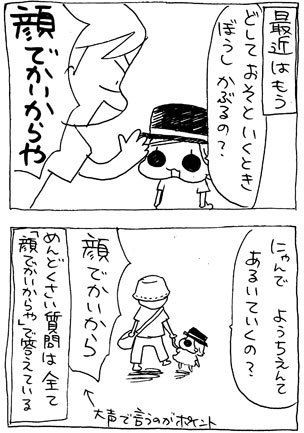 最近はもう
どしておそといくとき
ぼうし かぶるの？
顔でかいからや
にゃんで ようちえんて
あるいていくの？
顔でかいから
めんどくさい質問は全て
「顔でかいからや」で答えている
大声で言うのがポイント